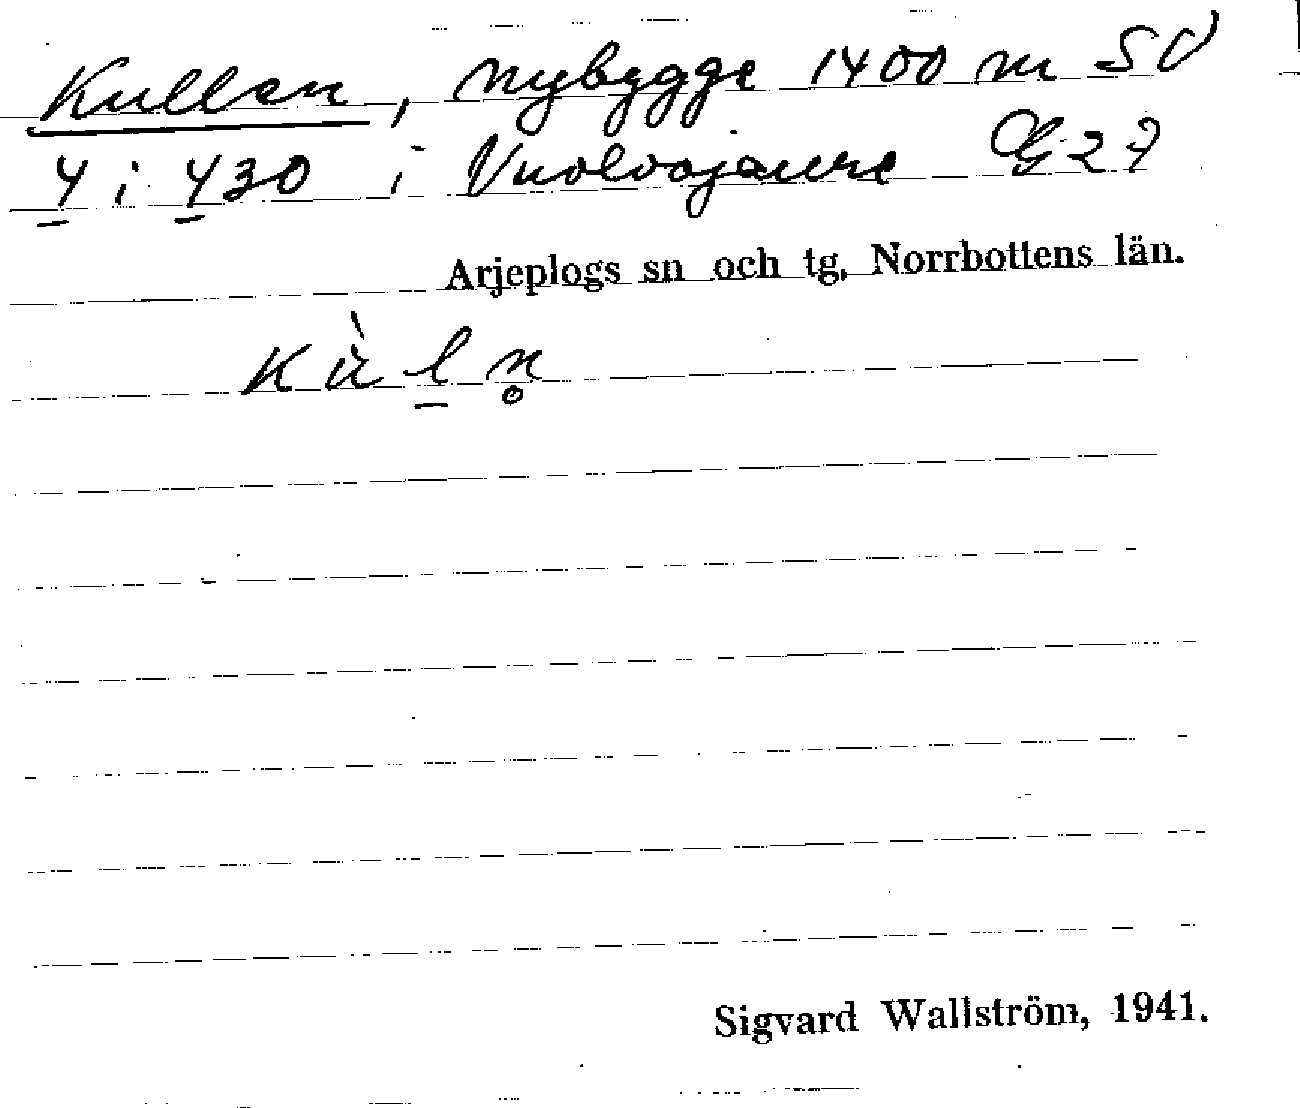 Kullen, nybygge 1400 m SV
4 i 430 i Vuolvojaure G 27
Arjeplogs sn och tg, Norrbottens län.
kùl̠n̥
Sigvard Wallström, 1941.